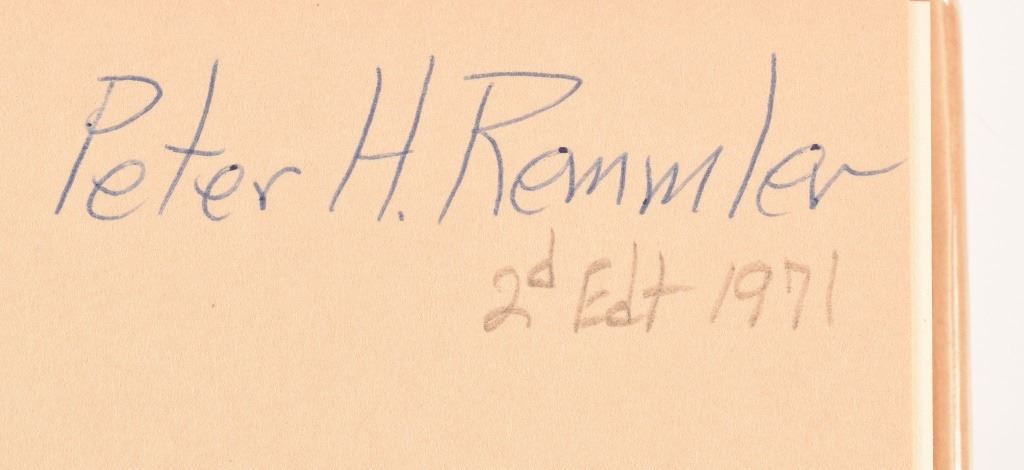 Peter H. Remmler
2d Edt 1971